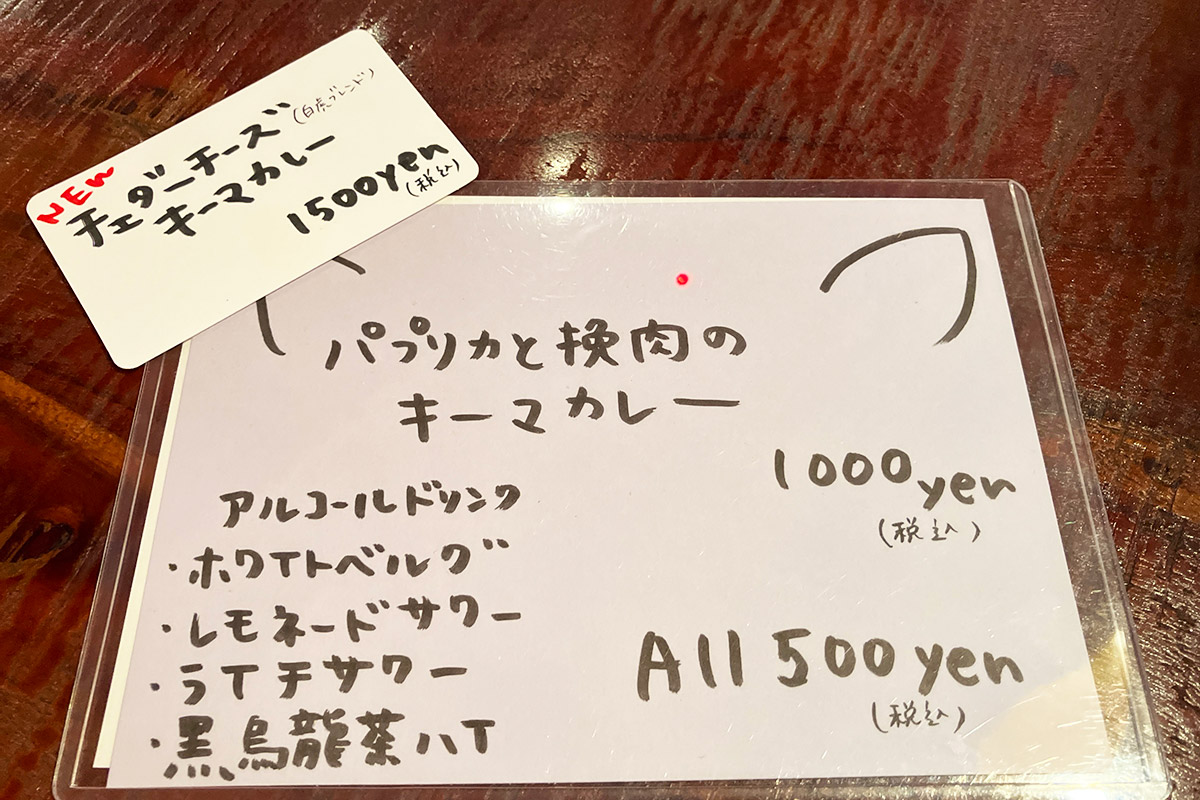 NEW
チェダーチーズ(白虎ブレンド)
キーマカレー
1500yen
(税込)
パプリカと挽肉の
キーマカレー
1000yen
(税込)
アルコールドリンク
・ホワイトベルグ
・レモネードサワー
・ライチサワー
・黒烏龍茶ハイ
All 500yen
(税込)